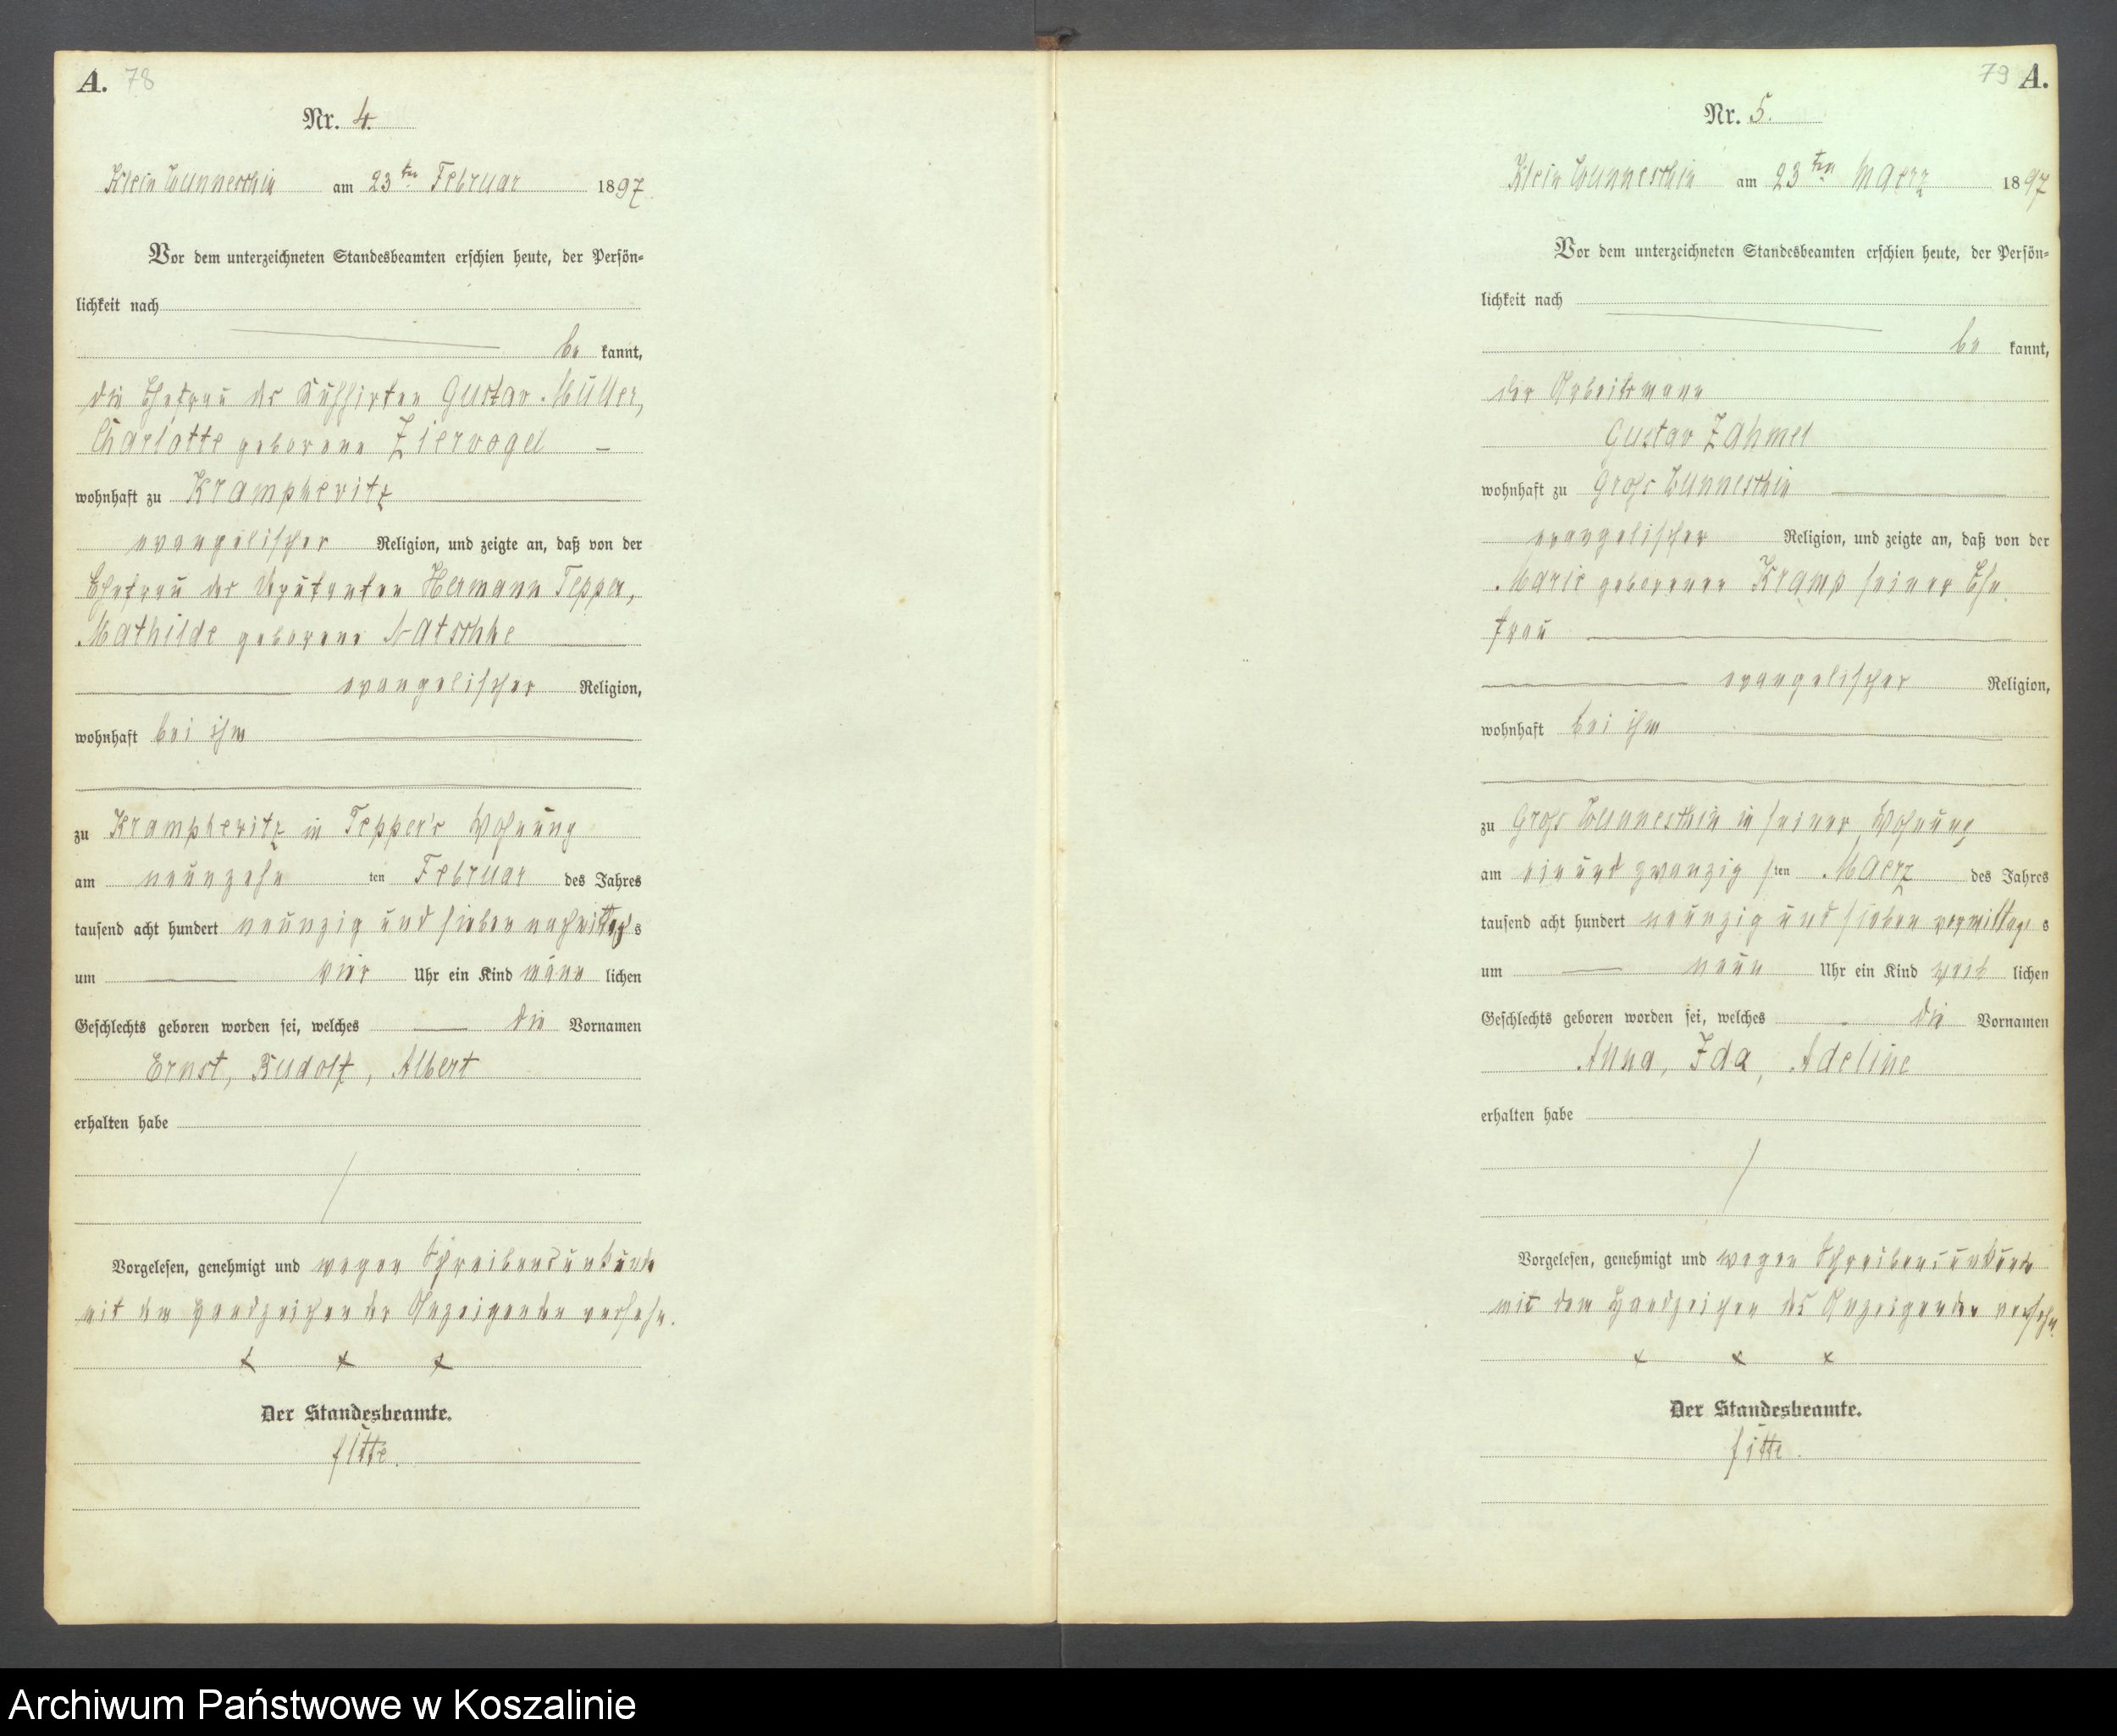 A. 78
Nr. 4.
Klein Wunneschin am 23ten Februar 1897
Vor dem unterzeichneten Standesbeamten erschien heute, der Persön-
lichkeit nach
be kannt,
die Ehefrau des Kuhhirten Gustav Müller,
Charlotte geborene Ziervogel
wohnhaft zu Krampkevitz
evangelischer Religion, und zeigte an, daß von der
Ehefrau des Deputanten Hermann Tepper,
Mathilde geborene Natschke
evangelischer Religion,
wohnhaft bei ihm
zu Krampkevitz in Tepper's Wohnung
am neunzehn ten Februar des Jahres
tausend acht hundert neunzig und sieben nachmittags
um vier Uhr ein Kind männ lichen
Geschlechts geboren worden sei, welches die Vornamen
Ernst, Rudolf, Albert
erhalten habe
Vorgelesen, genehmigt und wegen Schreibensunkunde
mit dem Handzeichen der Anzeigenden versehn.
x x x
Der Standesbeamte.
79 A.
Nr. 5.
Klein Wunneschin am 23ten Maerz 1897
Vor dem unterzeichneten Standesbeamten erschien heute, der Persön-
lichkeit nach
be kannt,
der Arbeitsmann
Gustav Zahmel
wohnhaft zu Groß Wunneschin
evangelischer Religion, und zeigte an, daß von der
Marie geborenen Kramp seiner Ehe
frau
evangelischer Religion,
wohnhaft bei ihm
zu Groß Wunneschin in seiner Wohnung
am ein und zwanzig sten Maerz des Jahres
tausend acht hundert neunzig und sieben vormittags
um neun Uhr ein Kind weib lichen
Geschlechts geboren worden sei, welches die Vornamen
Anna, Ida, Adeline
erhalten habe
Vorgelesen, genehmigt und wegen Schreibensunkunde
mit dem Handzeichen des Anzeigenden versehn.
x x x
Der Standesbeamte.
Archiwum Państwowe w Koszalinie